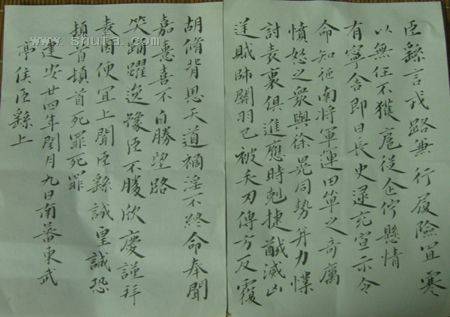 臣繇言戎路兼行履險冒寒
以無任不獲扈從企佇懸情
有寧舍即日長史逯充宣示令
命知征南將軍運田單之奇厲
憤怒之眾與徐晃同勢并力撲
討表裏俱進應時剋捷馘滅凶
逆賊帥關羽已被矢刃傅方反覆
胡脩背恩天道禍淫不終命奉聞
嘉憙喜不自勝望路
笑踴躍逸豫臣不勝欣慶謹拜
表因便宜上聞臣繇誠惶誠恐
頓首頓首死罪死罪
建安廿四年閏月九日南蕃東武
亭侯臣繇上